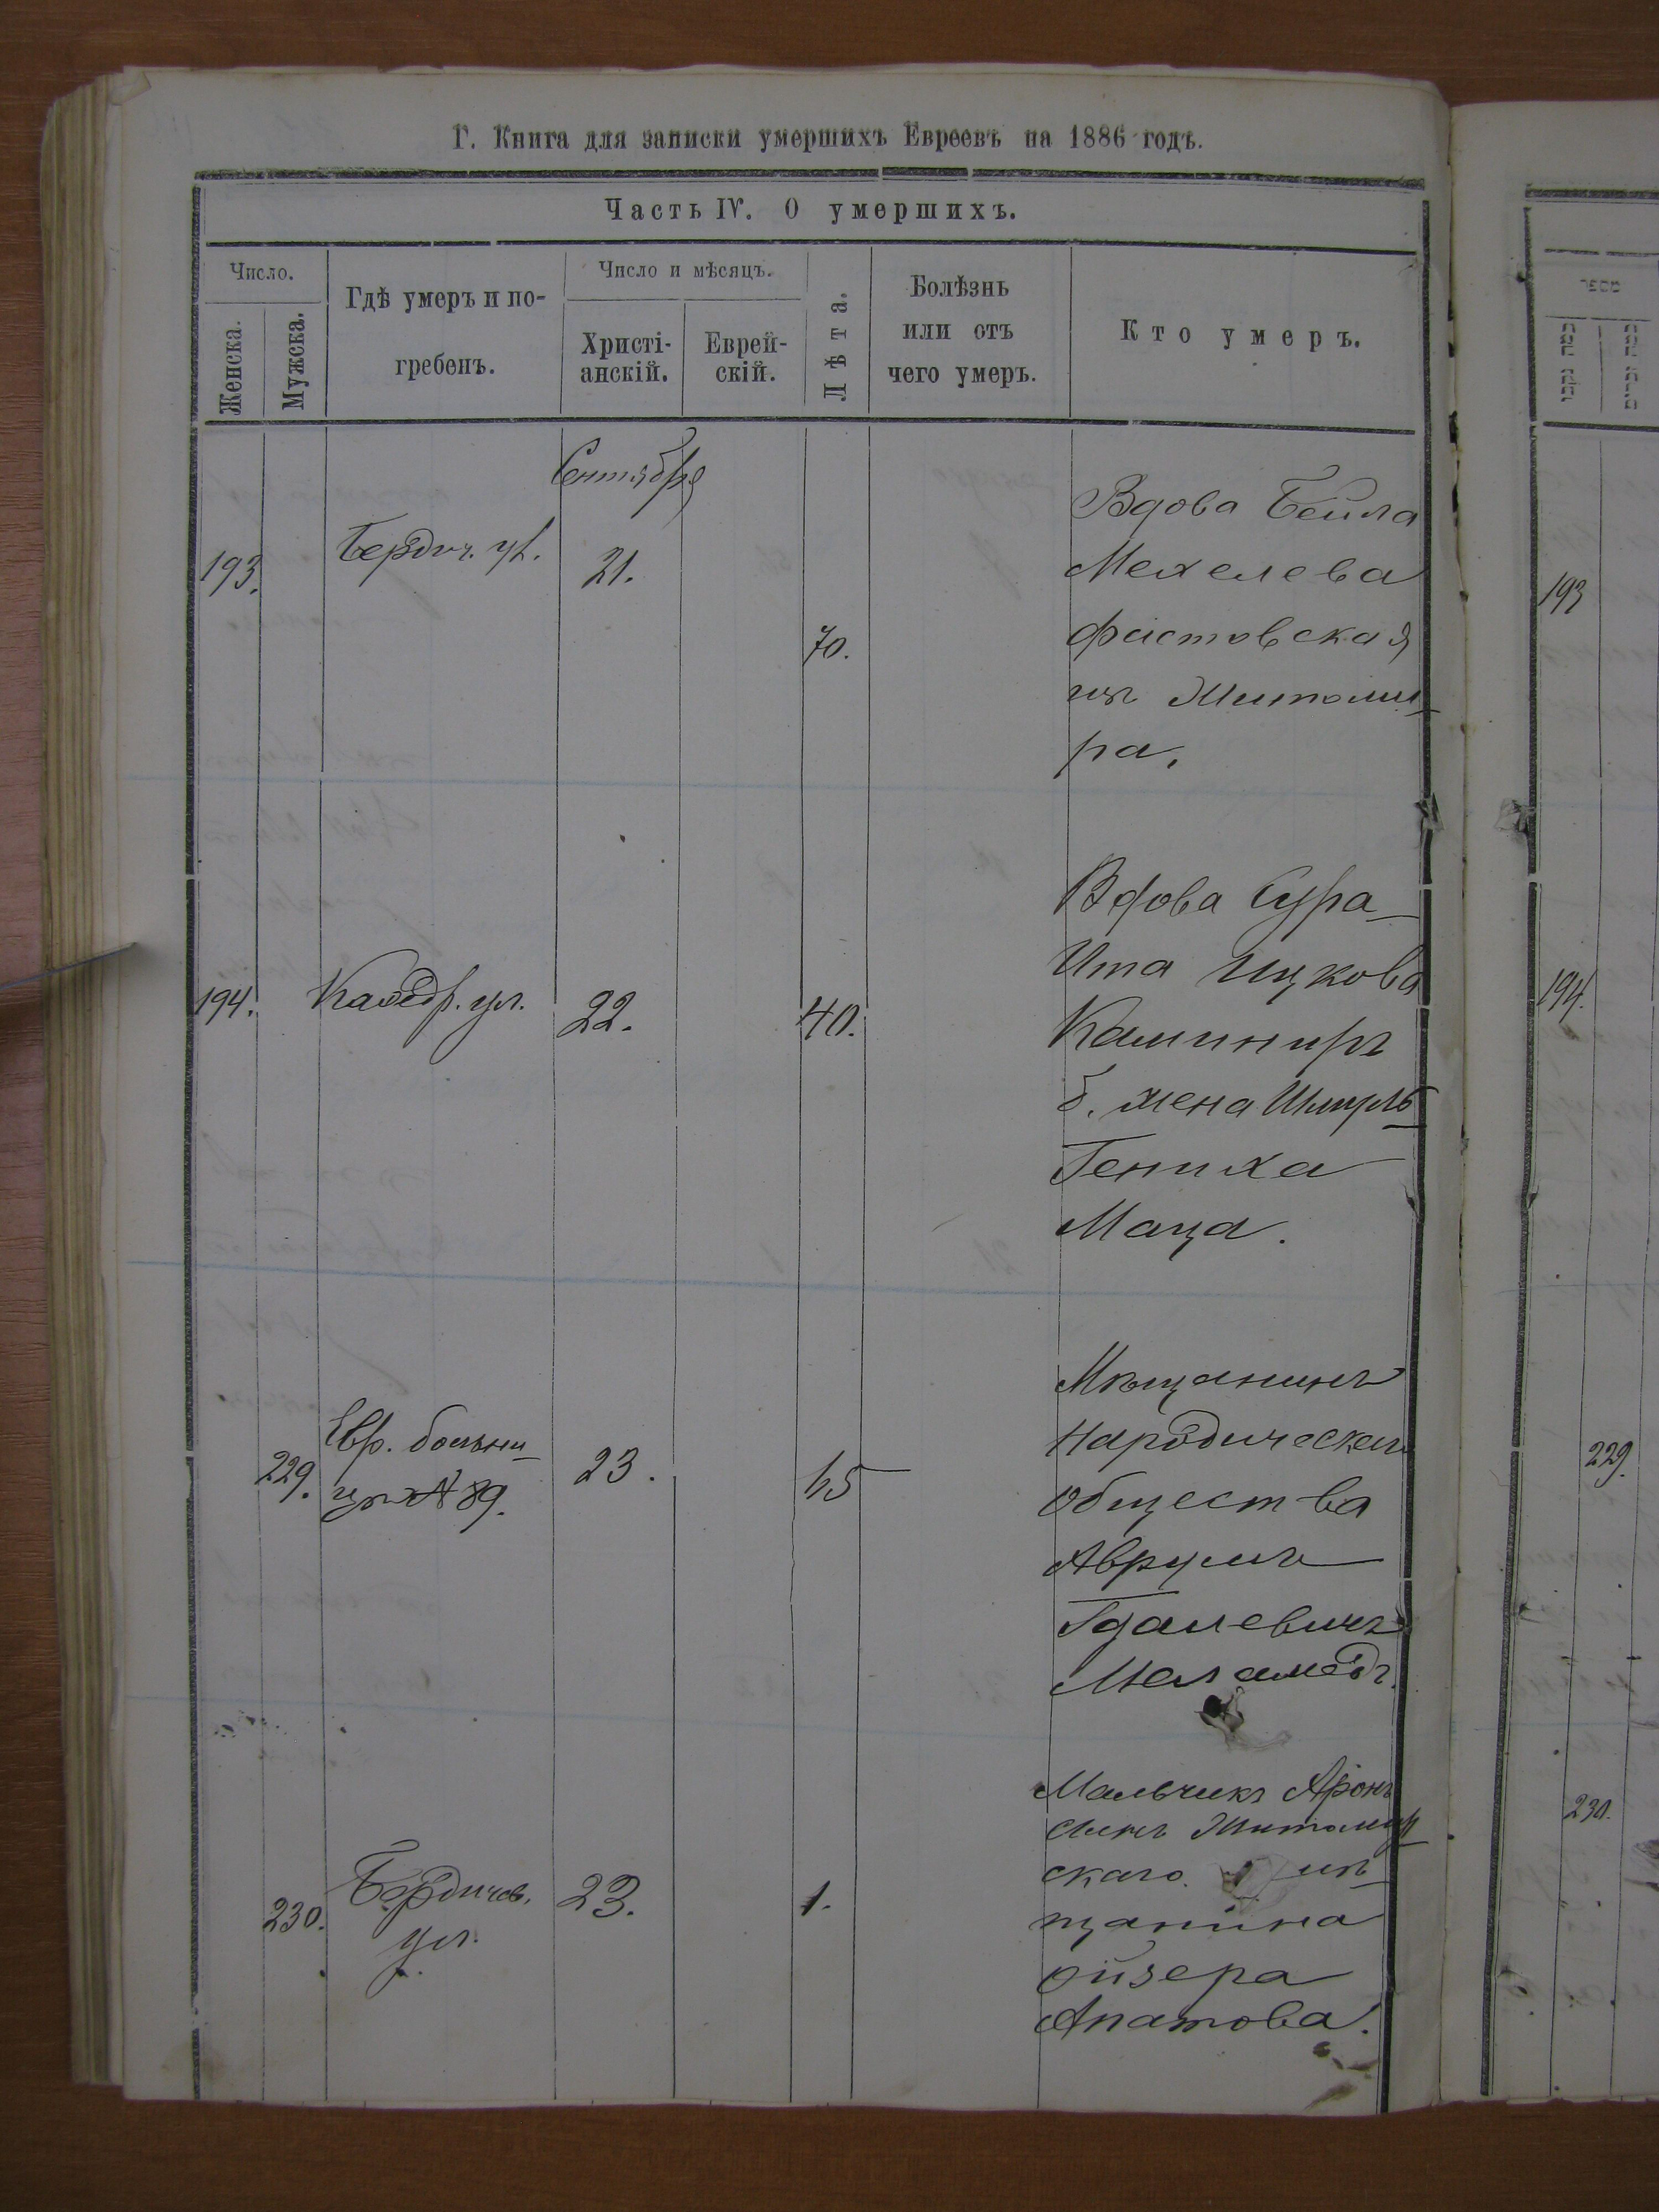 Г. Книга для записки умершихъ Евреевъ на 1886 годъ.
Часть IV. О умершихъ.
Число.
Женска.
Мужска.
Гдѣ умеръ и по-
гребенъ.
Число и мѣсяцъ.
Христі-
анскій.
Еврей-
скій.
Лѣта.
Болѣзнь
или отъ
чего умеръ.
Кто умеръ.
Сентября
193.
Бердич. ул.
21.
70.
Вдова Бейла
Мехелева
Фастовская
изъ Житоми-
ра.
194.
Кафедр. ул.
22.
40.
Вдова Сура-
Ита Ицкова
Каминиръ
б. жена Шмуль-
Гениха
Маца.
229.
Евр. больни-
ца № 89.
23.
65
Мѣщанинъ
Народическаго
общества
Аврумъ
Гдалевичъ
Меламедъ.
230.
Бердичев.
ул.
23.
1.
Мальчикъ Аронъ
сынъ Житомир-
скаго мѣ-
щанина
Ойзера
Апатова.
193
194.
229.
230.